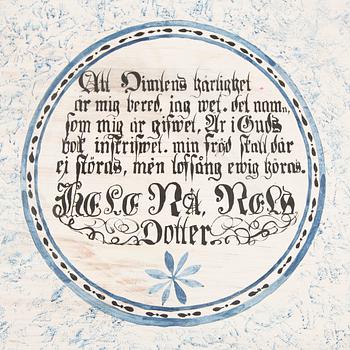 Att Himlens härlighet
är mig bered. jag wet. det namn,
som mig är gifwet. Är i Guds
bok inskrifwet. min fröd skall där
ej störas, men loffsång ewig höras.
HELENA, NELS
Dotter